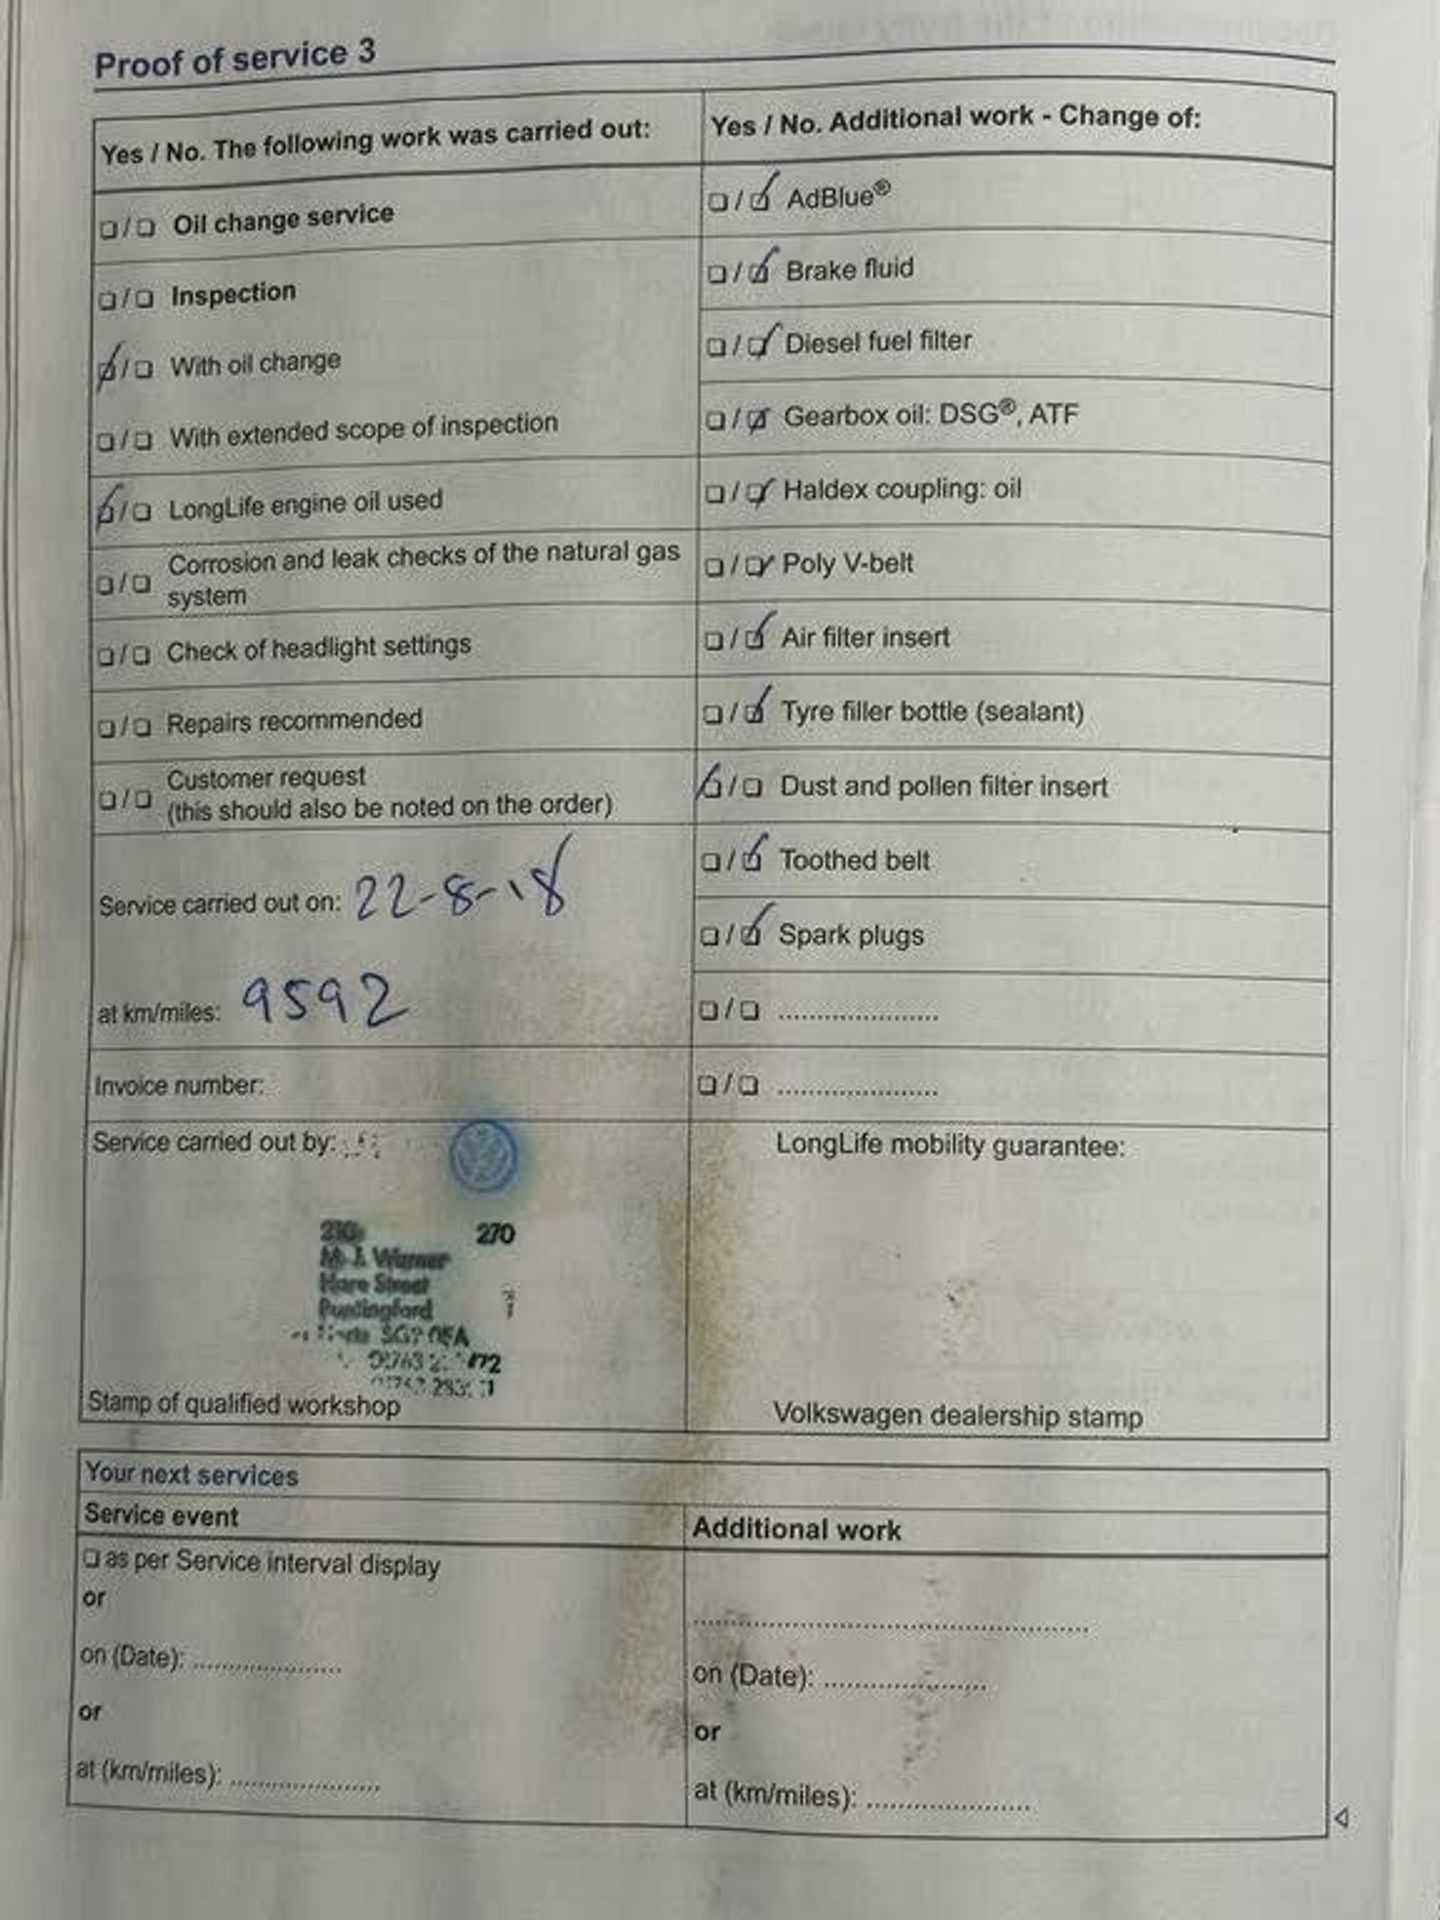 Proof of service 3
Yes / No. The following work was carried out:
❏/❏ Oil change service
❏/❏ Inspection
❏/❏ With oil change
❏/❏ With extended scope of inspection
❏/❏ LongLife engine oil used
❏/❏ Corrosion and leak checks of the natural gas
system
❏/❏ Check of headlight settings
❏/❏ Repairs recommended
❏/❏ Customer request
(this should also be noted on the order)
Service carried out on: 22-8-18
at km/miles: 9592
Invoice number:
Service carried out by:
270
Warner
Hare Street
SG9 0EA
Stamp of qualified workshop
Yes / No. Additional work - Change of:
❏/❏ AdBlue®
❏/❏ Brake fluid
❏/❏ Diesel fuel filter
❏/❏ Gearbox oil: DSG®, ATF
❏/❏ Haldex coupling: oil
❏/❏ Poly V-belt
❏/❏ Air filter insert
❏/❏ Tyre filler bottle (sealant)
❏/❏ Dust and pollen filter insert
❏/❏ Toothed belt
❏/❏ Spark plugs
❏/❏ ......................
❏/❏ ......................
LongLife mobility guarantee:
Volkswagen dealership stamp
Your next services
Service event
❏ as per Service interval display
or
on (Date): ......................
or
at (km/miles): ......................
Additional work
......................................................
on (Date): ......................
or
at (km/miles): ......................